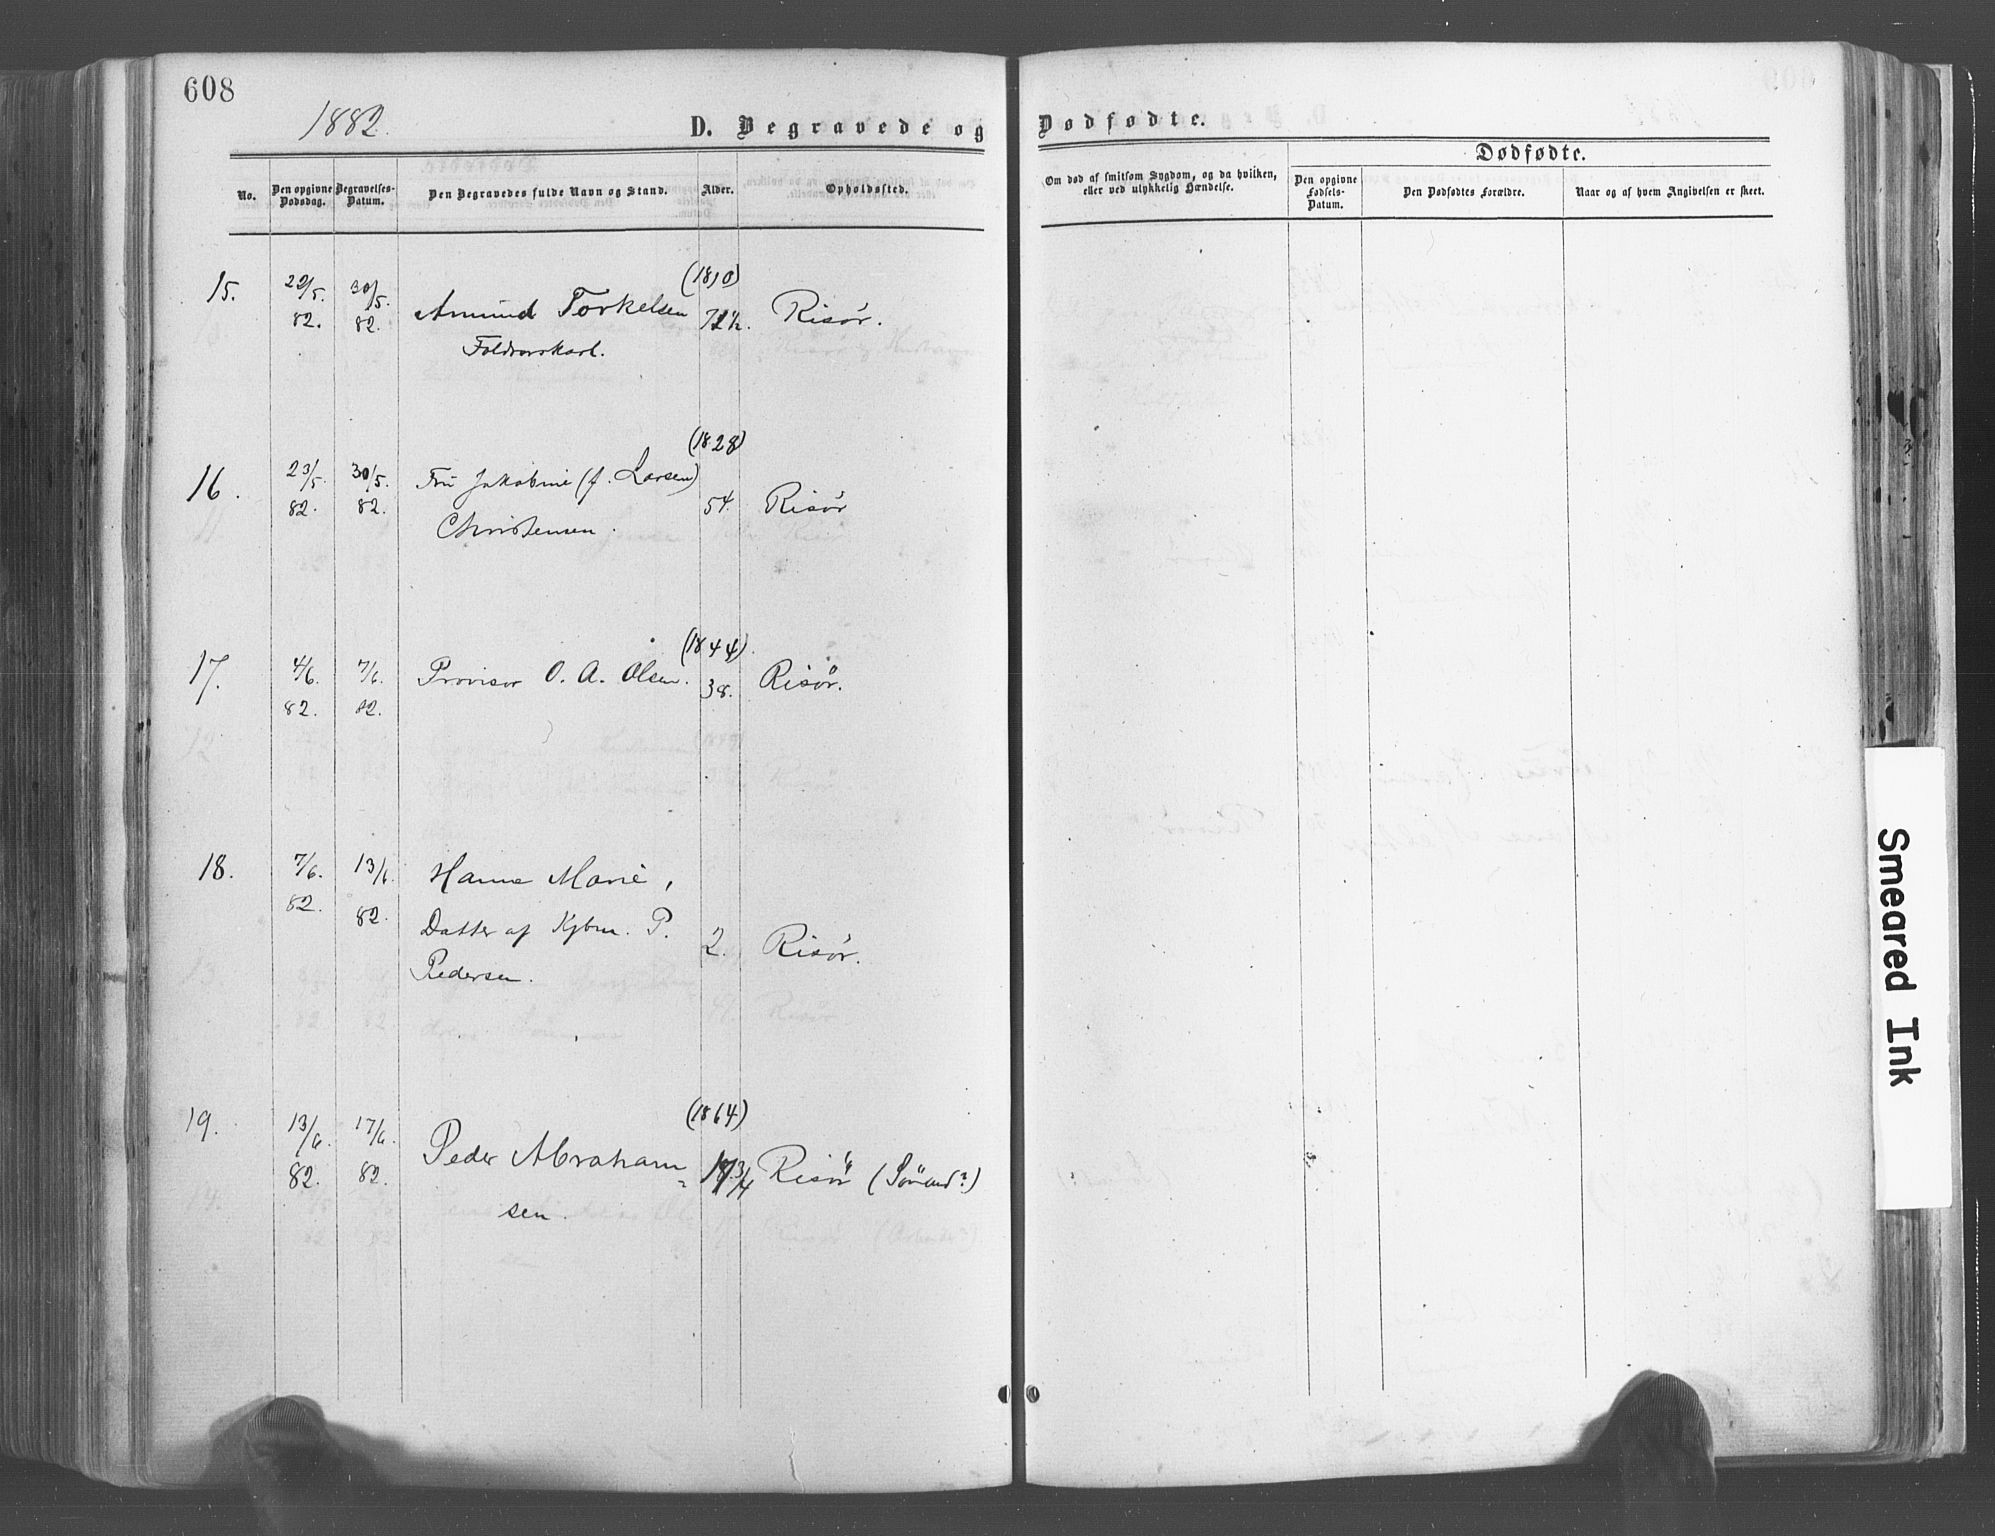 608
1882.
D. Begravede og Dødfødte.
Dødfødte.
No.
Den opgivne Dødsdag.
Begravelses-Datum.
Den Begravedes fulde Navn og Stand.
Alder.
Opholdssted.
Om død af smitsom Sygdom, og da hvilken,
eller ved ulykkelig Hændelse.
Den opgivne Fødsels-Datum.
Den Dødfødtes Forældre.
Naar og af hvem Angivelsen er skeet.
(1810)
15. 22/5. 82. 30/5. 82. Amund Torkelsen 72 Risør.
(1828)
16. 23/5. 82. 30/5. 82. Fru Jakobine (f. Larsen)
Christensen. 54. Risør
(1844)
17. 4/6. 82. 7/6. 82. Provisor O. A. Olsen. 38. Risør.
18. 7/6. 82. 13/6. 82. Hanne Marie,
Datter af Kjbm. P.
Pedersen. 2. Risør.
(1864)
19. 13/6. 82. 17/6. 82. Peder Abraham=
sen. 17 3/4 Risør (Sømand?)
Smeared Ink